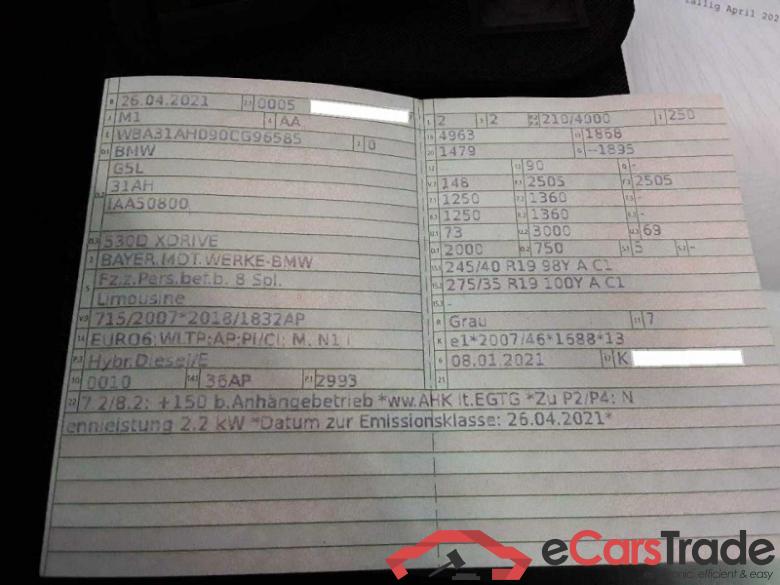 fällig April 202
B 26.04.2021 2.1 0005
J M1 4 AA
E WBA31AH090CG96585 3 0
D.1 BMW
G5L
D.2 31AH
IAA50800
D.3 530D XDRIVE
2 BAYER.MOT.WERKE-BMW
5 Fz.z.Pers.bef.b. 8 Spl.
Limousine
V.9 715/2007*2018/1832AP
14 EURO6;WLTP;AP;PI/CI; M, N1 I
P.3 Hybr.Diesel/E
10 0010 14.1 36AP P.1 2993
22 7.2/8.2: +150 b.Anhängebetrieb *ww.AHK lt.EGTG *Zu P2/P4: N
ennleistung 2.2 kW *Datum zur Emissionsklasse: 26.04.2021*
L 2 9 2 P.2 P.4 210/4000 T 250
18 4963 19 1868
20 1479 G --1895
12 - 13 90 Q -
V.7 148 F.1 2505 F.2 2505
7.1 1250 7.2 1360 7.3 -
8.1 1250 8.2 1360 8.3 -
U.1 73 U.2 3000 U.3 69
O.1 2000 O.2 750 S.1 5 S.2 -
15.1 245/40 R19 98Y A C1
15.2 275/35 R19 100Y A C1
15.3 -
R Grau 11 7
K e1*2007/46*1688*13
6 08.01.2021 17 K
21
eCarsTrade
efficient & easy